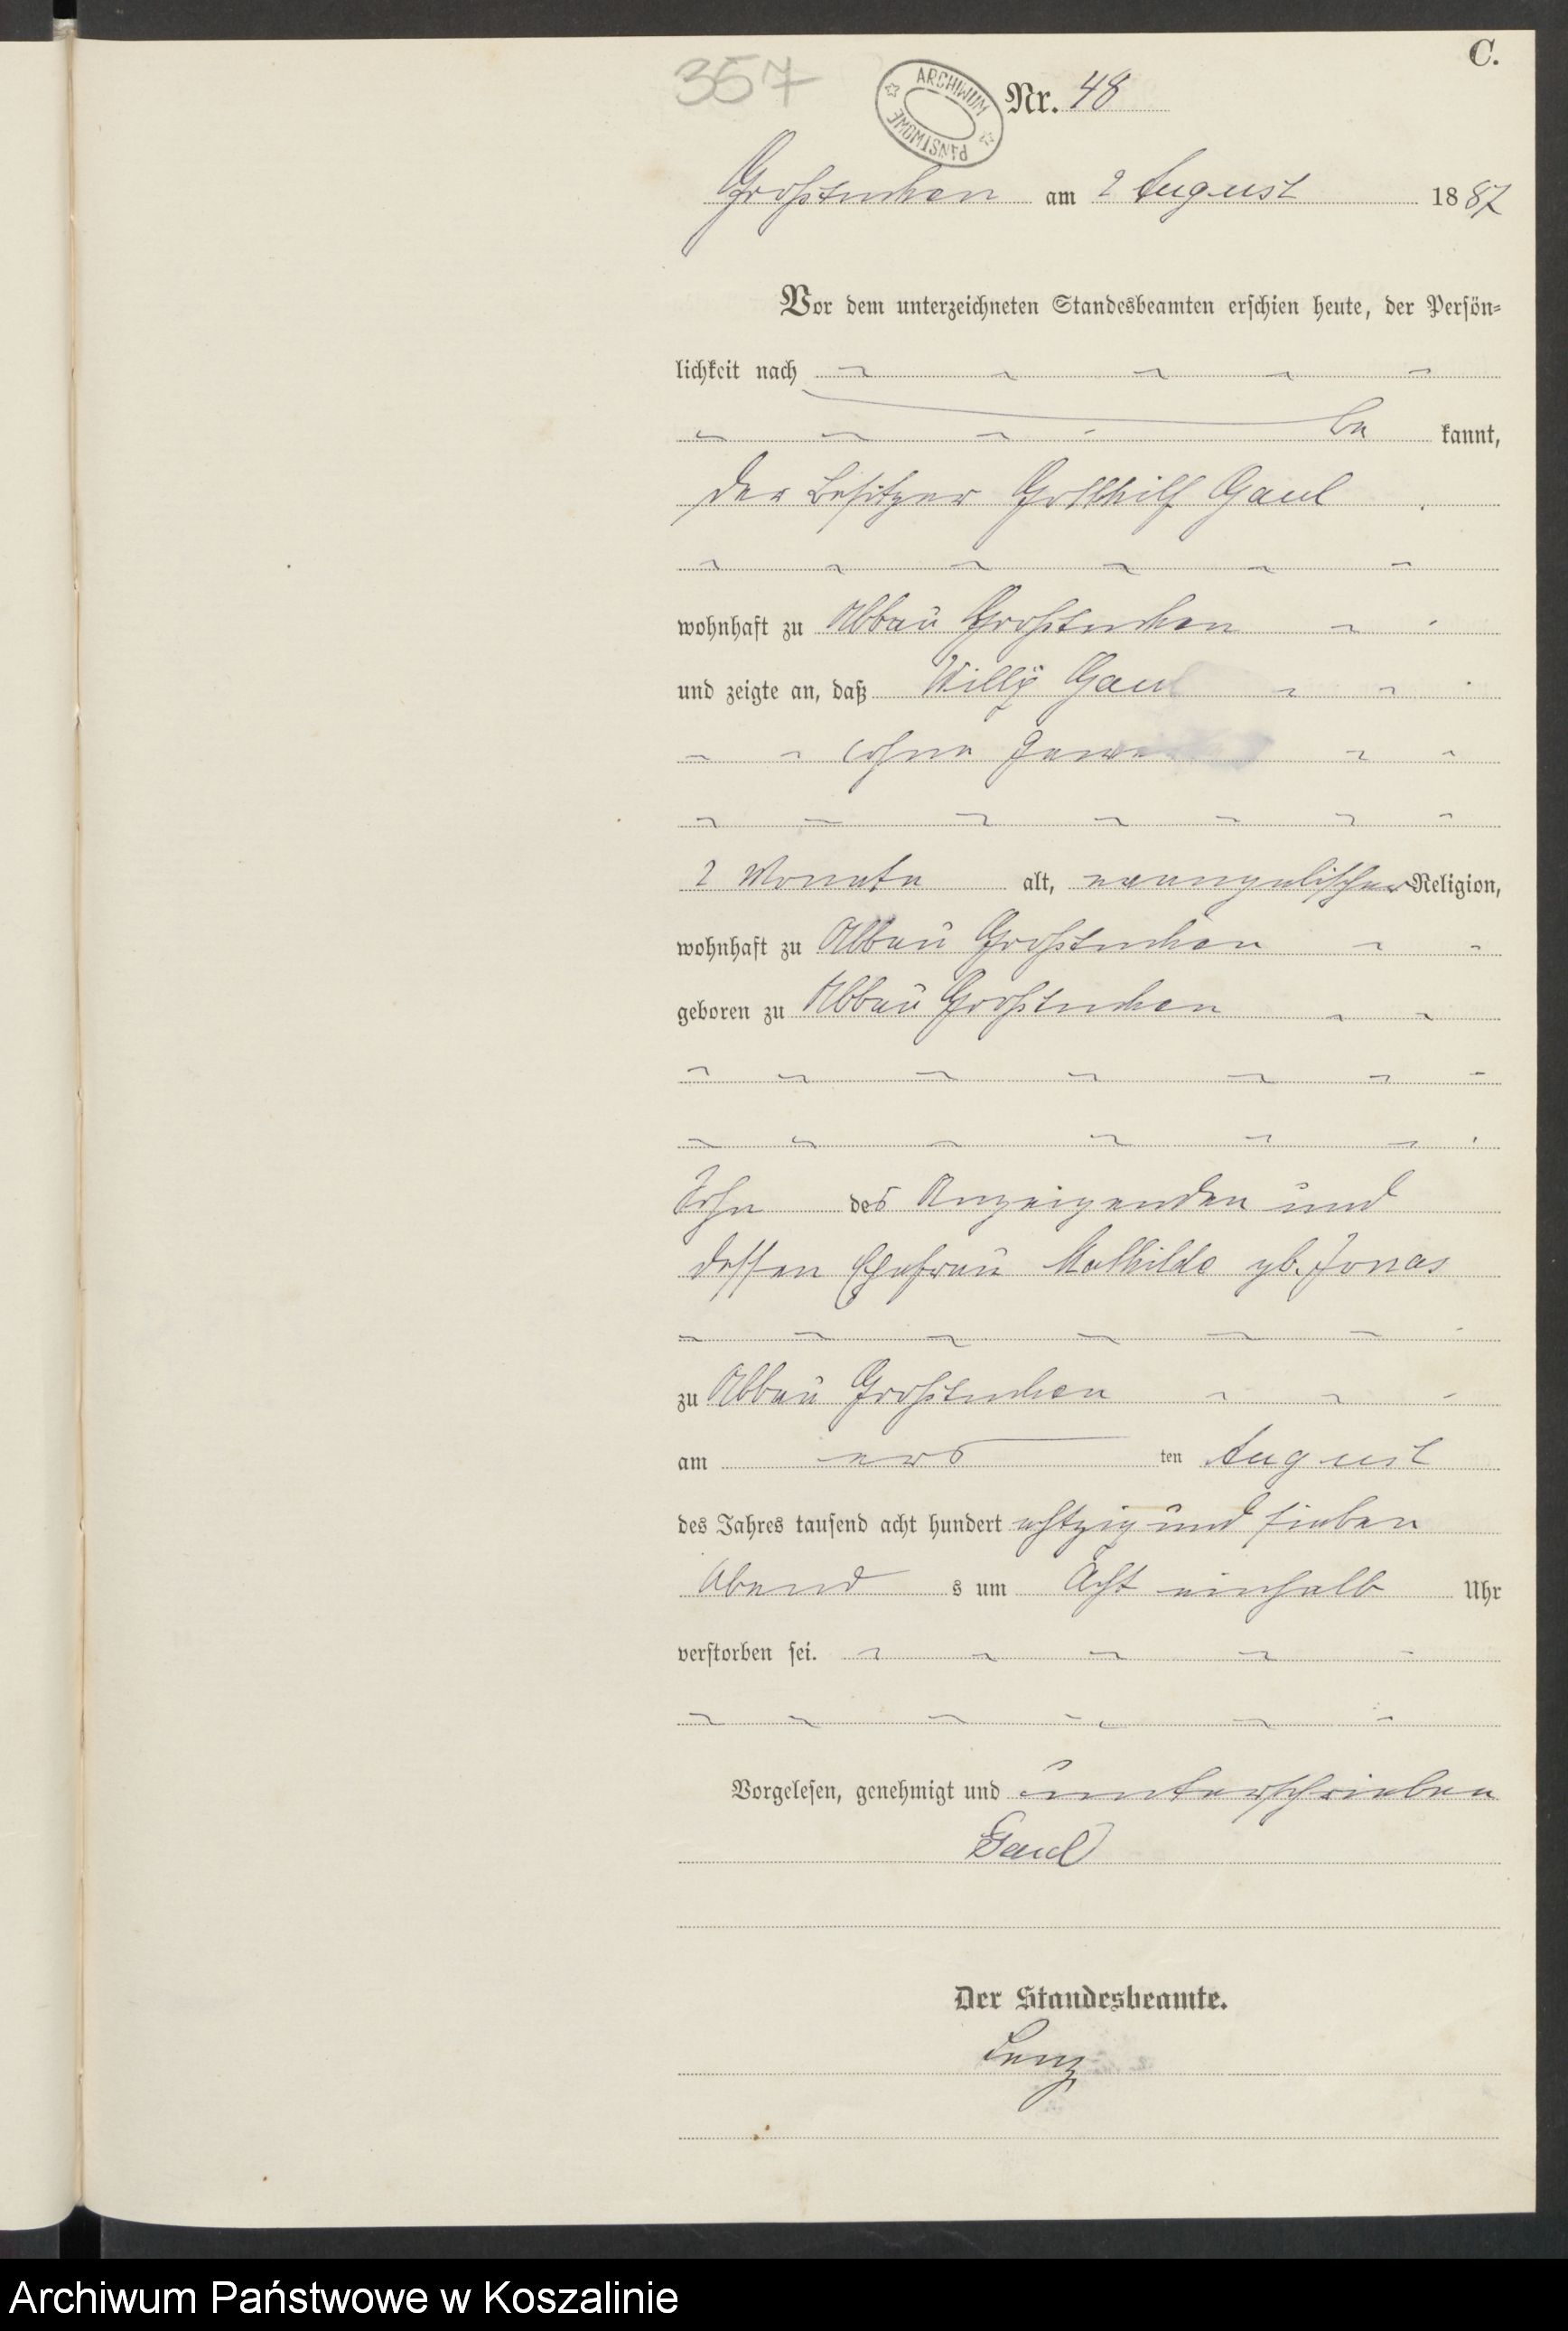 C.
357
ARCHIWUM PAŃSTWOWE
Nr. 48
Großtuchen am 2 August 1887
Vor dem unterzeichneten Standesbeamten erschien heute, der Persön-
lichkeit nach
be kannt,
der Besitzer Gotthilf Gaul
wohnhaft zu Abbau Großtuchen
und zeigte an, daß Willy Gaul
ohne
2 Monate alt, evangelischer Religion,
wohnhaft zu Abbau Großtuchen
geboren zu Abbau Großtuchen
Sohn des Anzeigenden und
dessen Ehefrau Mathilde gb. Jonas
zu Abbau Großtuchen
am ers ten August
des Jahres tausend acht hundert achtzig und sieben
Abend s um Acht einhalb Uhr
verstorben sei.
Vorgelesen, genehmigt und unterschrieben
Gaul
Der Standesbeamte.
Lenz
Archiwum Państwowe w Koszalinie